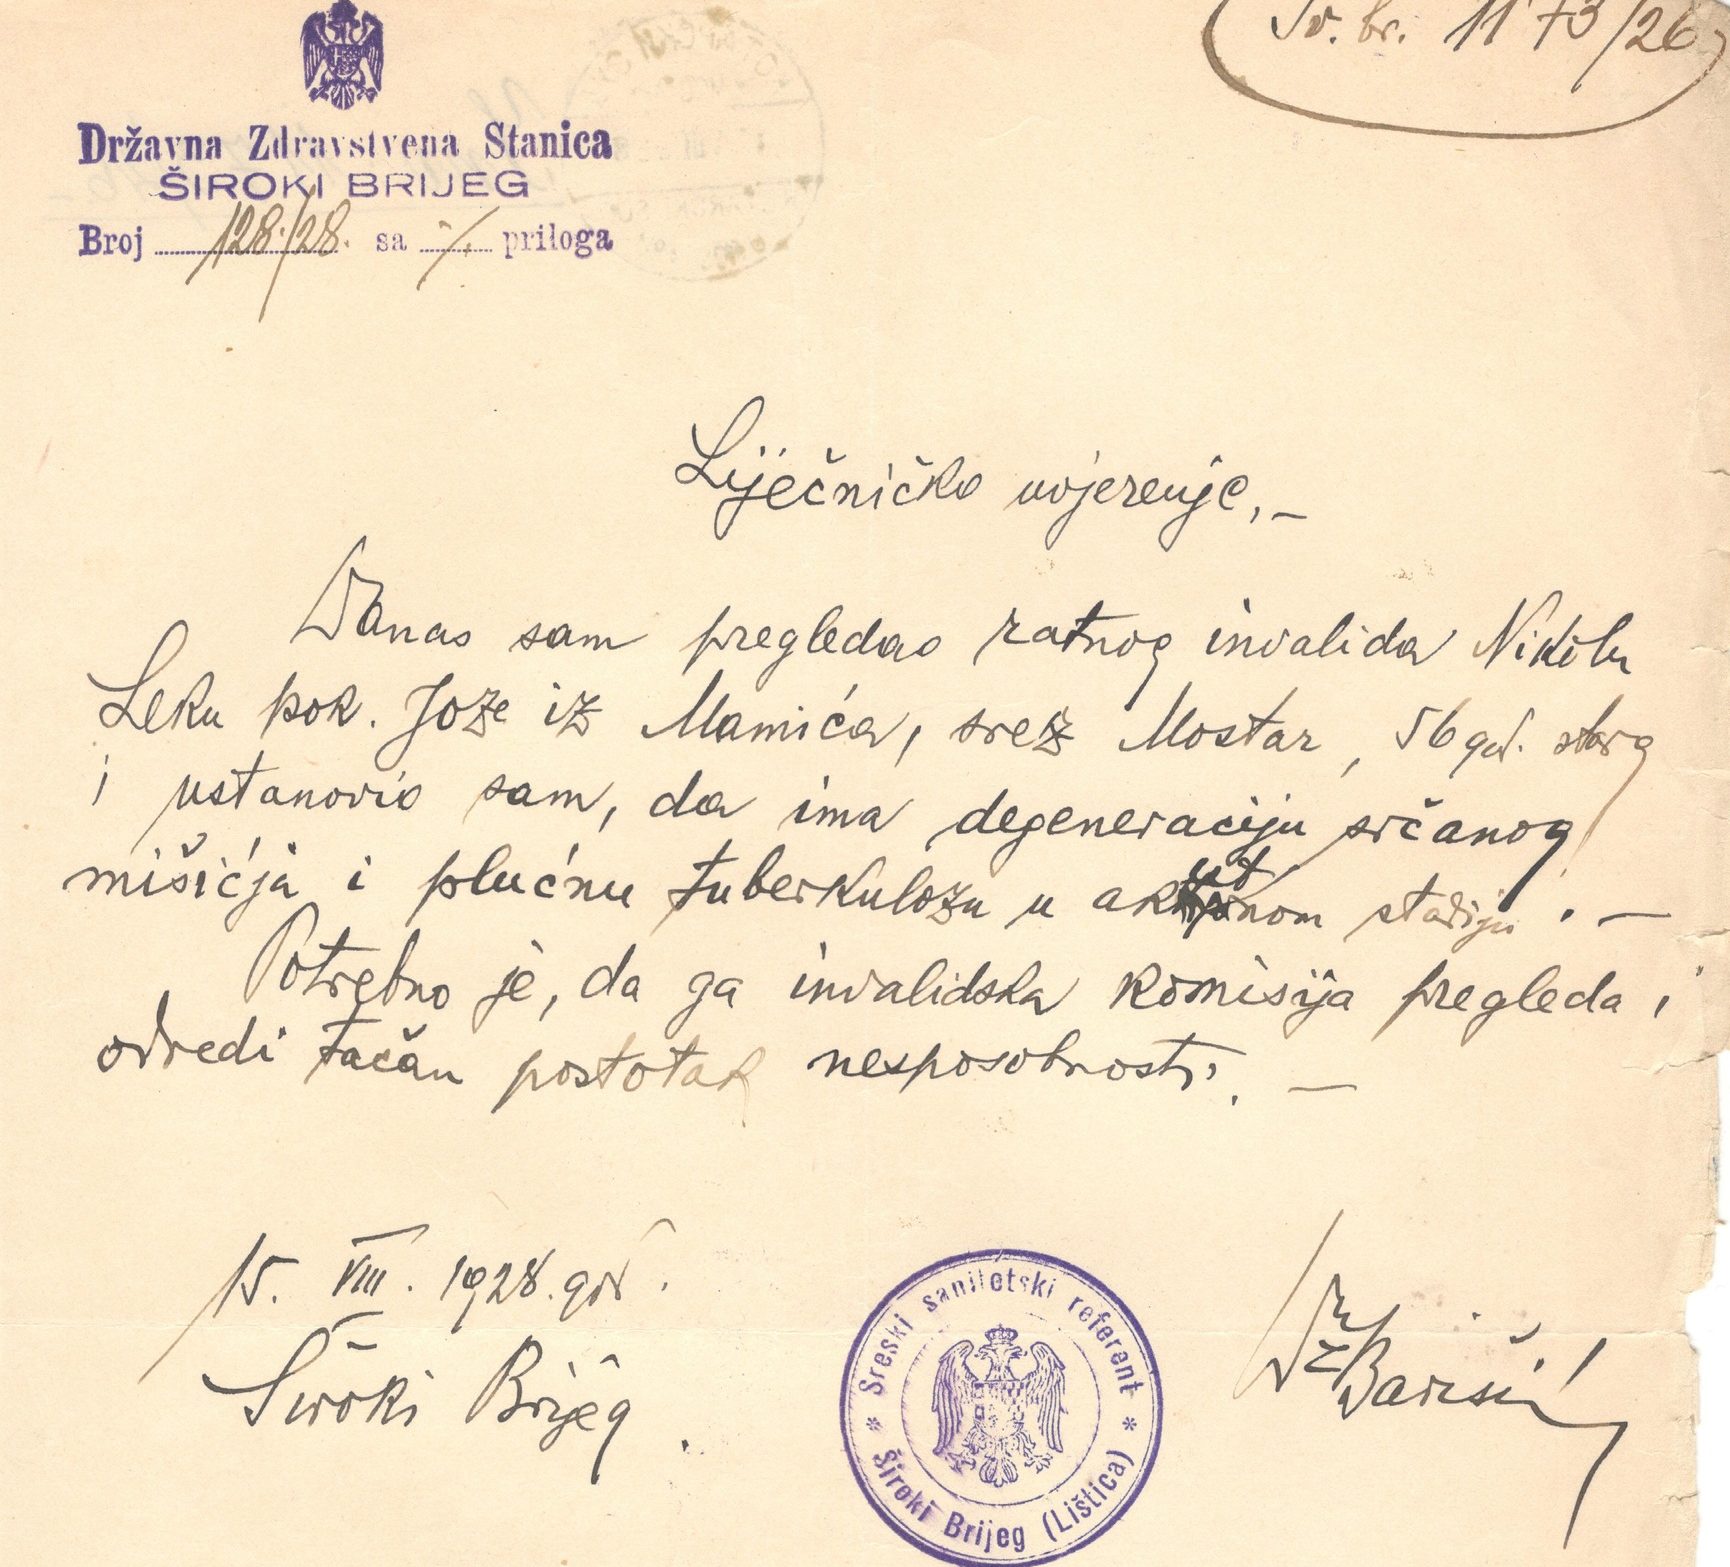 Sv. br. 1173/26
Državna Zdravstvena Stanica
ŠIROKI BRIJEG
Broj 128/28. sa ·/. priloga
Liječničko uvjerenje.-
Danas sam pregledao ratnog invalida Nikolu
Leku pok. Joze iz Mamića, srez Mostar, 56 god. starog
i ustanovio sam, da ima degeneraciju srčanog
mišićja i plućnu tuberkulozu u akutnom stadiju. -
Potrebno je, da ga invalidska komisija pregleda i
odredi tačan postotak nesposobnosti. -
15. VIII. 1928. god.
Široki Brijeg.
Dr Barišić
Sreski sanitetski referent
* Široki Brijeg (Lištica) *